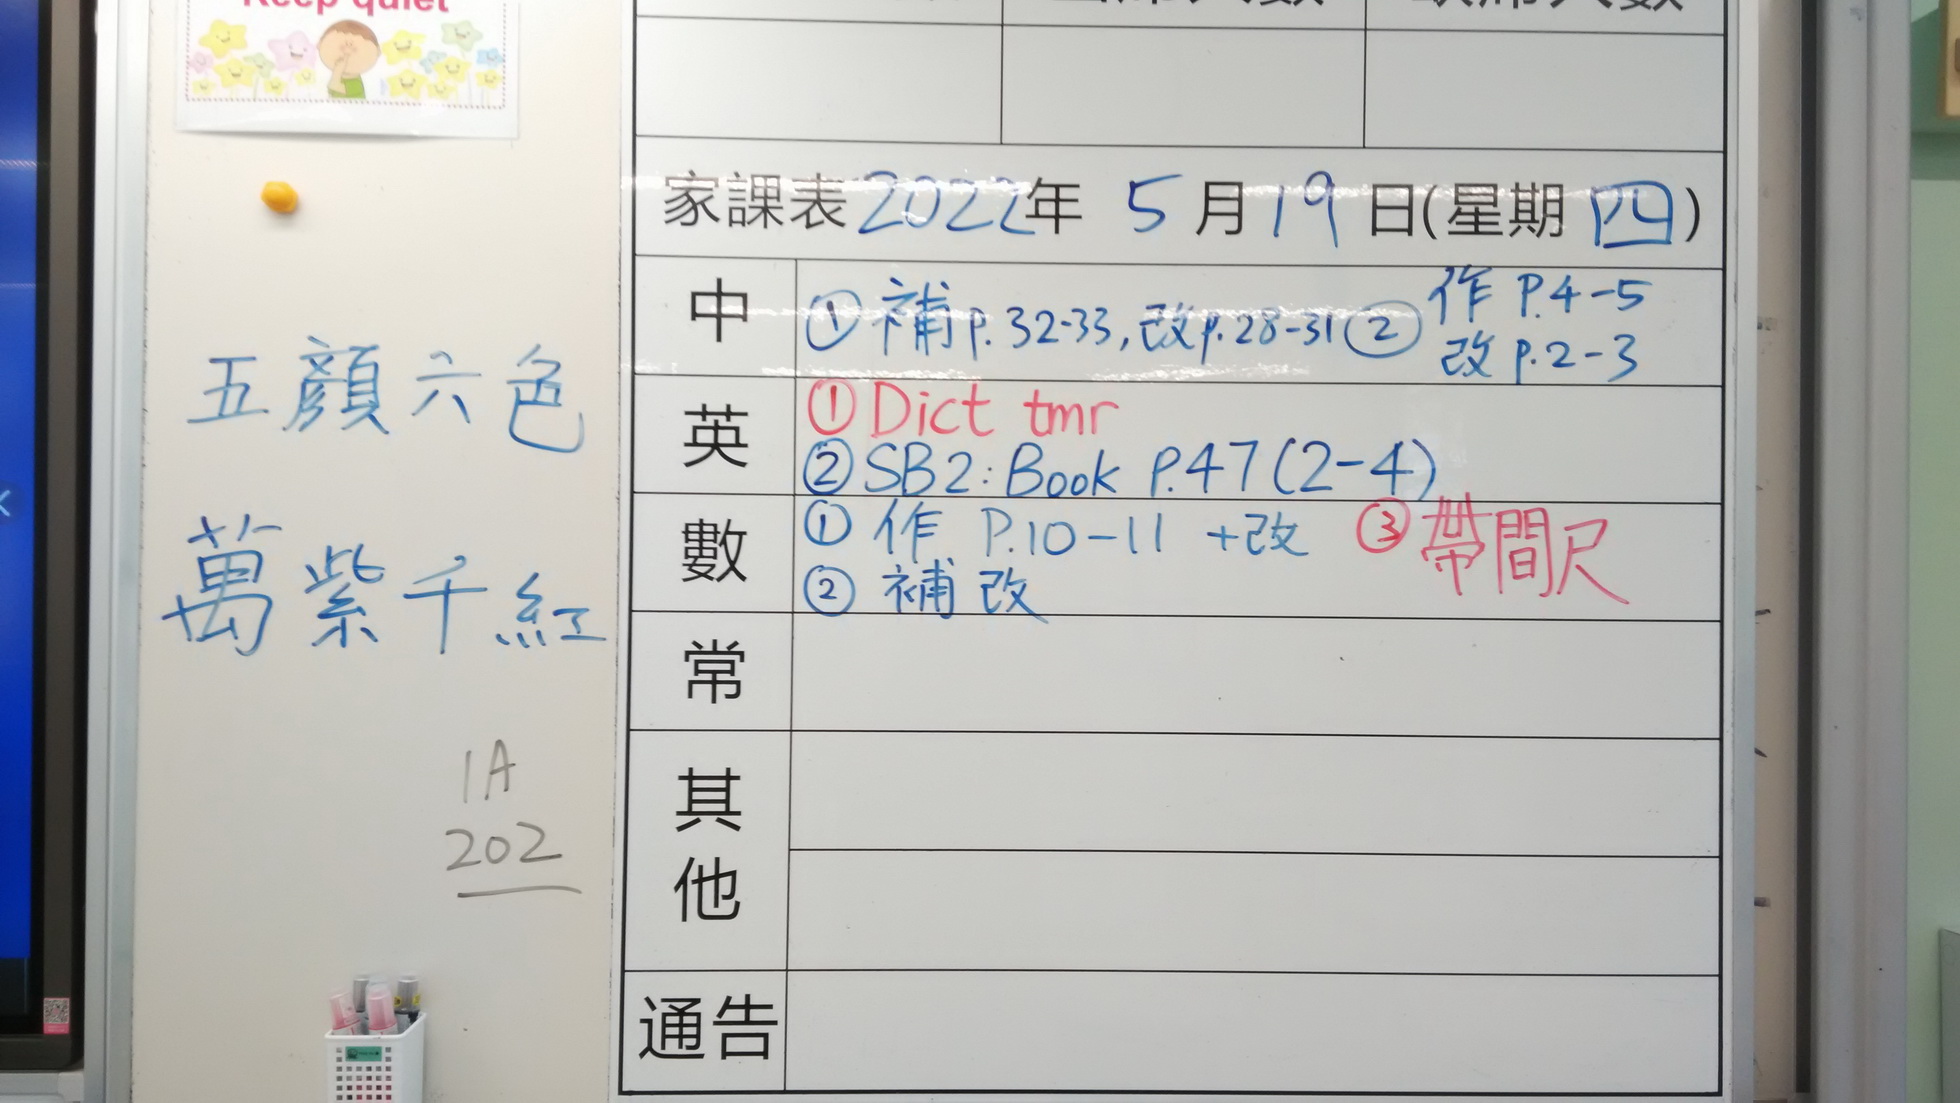 Keep quiet
家課表 2022年 5月19日(星期四)
中
① 補 p.32-33, 改 p.28-31 ② 作 P.4-5
改 p.2-3
英
① Dict tmr
② SB2: Book P.47(2-4)
數
① 作 P.10-11 +改 ③ 帶間尺
② 補 改
常
其他
通告
五顏六色
萬紫千紅
1A
202